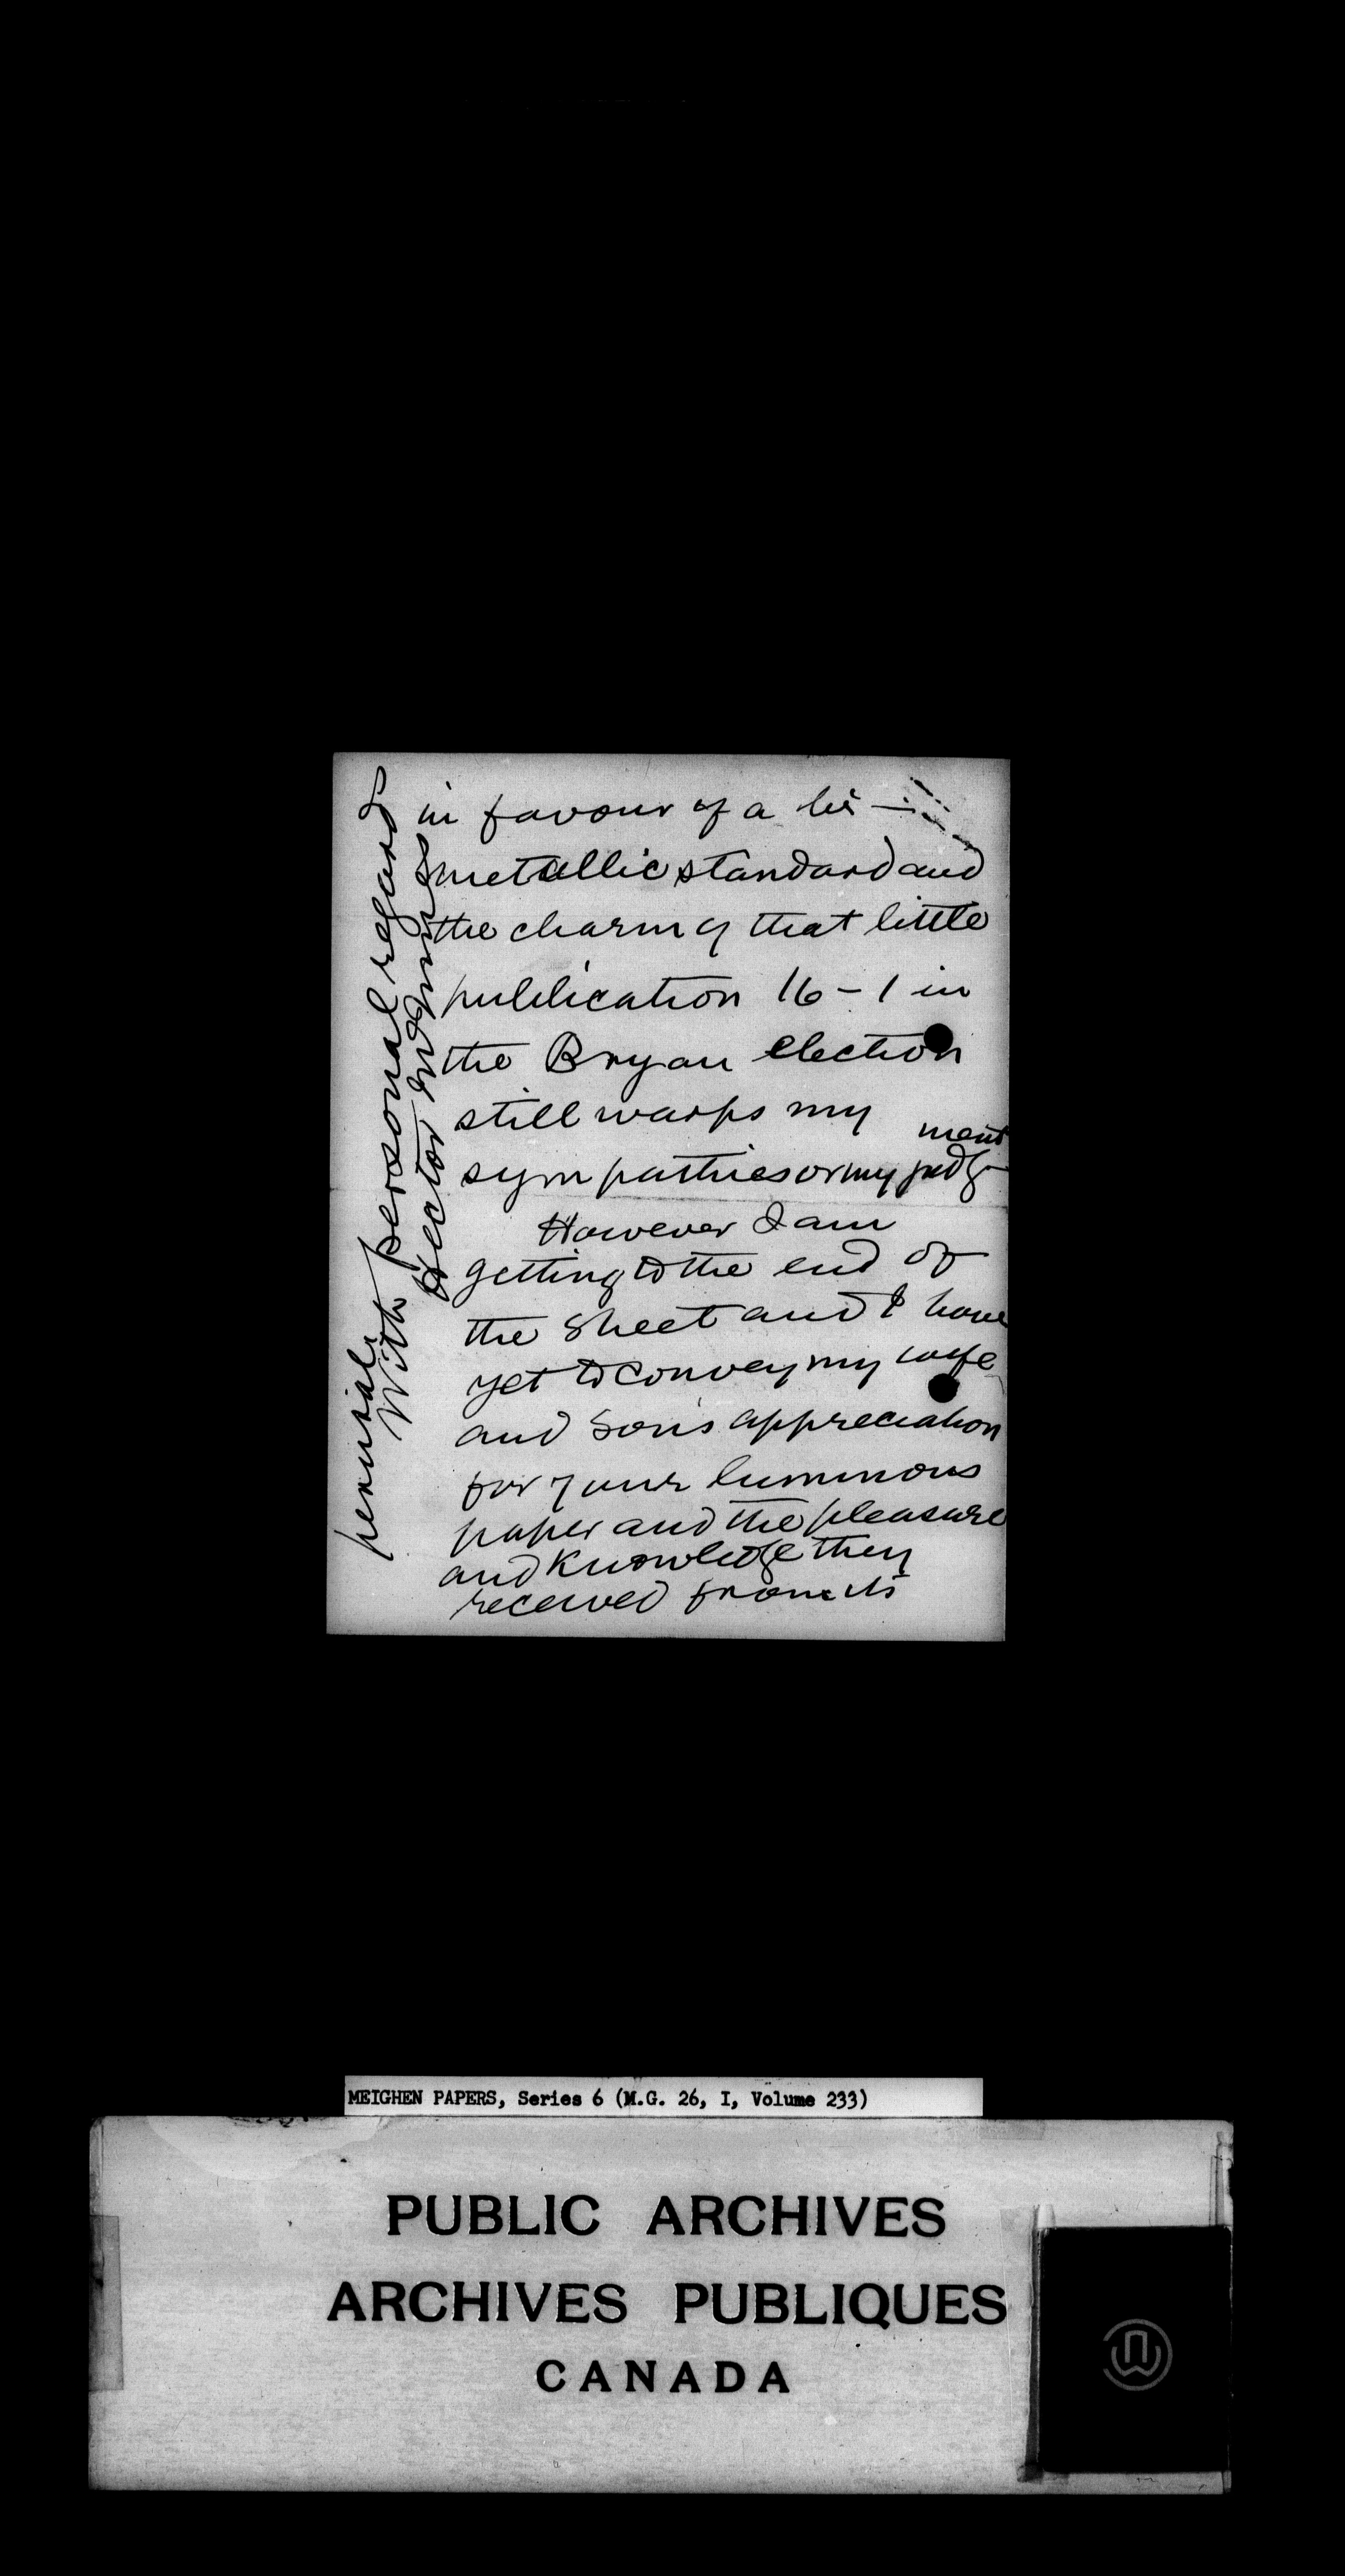 in favour of a bi-
metallic standard and
the charm of that little
publication 16-1 in
the Bryan election
still warps my
sympathies or my judg-
ment
However I am
getting to the end of
the sheet and I have
yet to convey my wife
and son's appreciation
for your luminous
paper and the pleasure
and knowledge they
received from its
perusal.
With personal regards
Hector McInnes
MEIGHEN PAPERS, Series 6 (M.G. 26, I, Volume 233)
PUBLIC ARCHIVES
ARCHIVES PUBLIQUES
CANADA